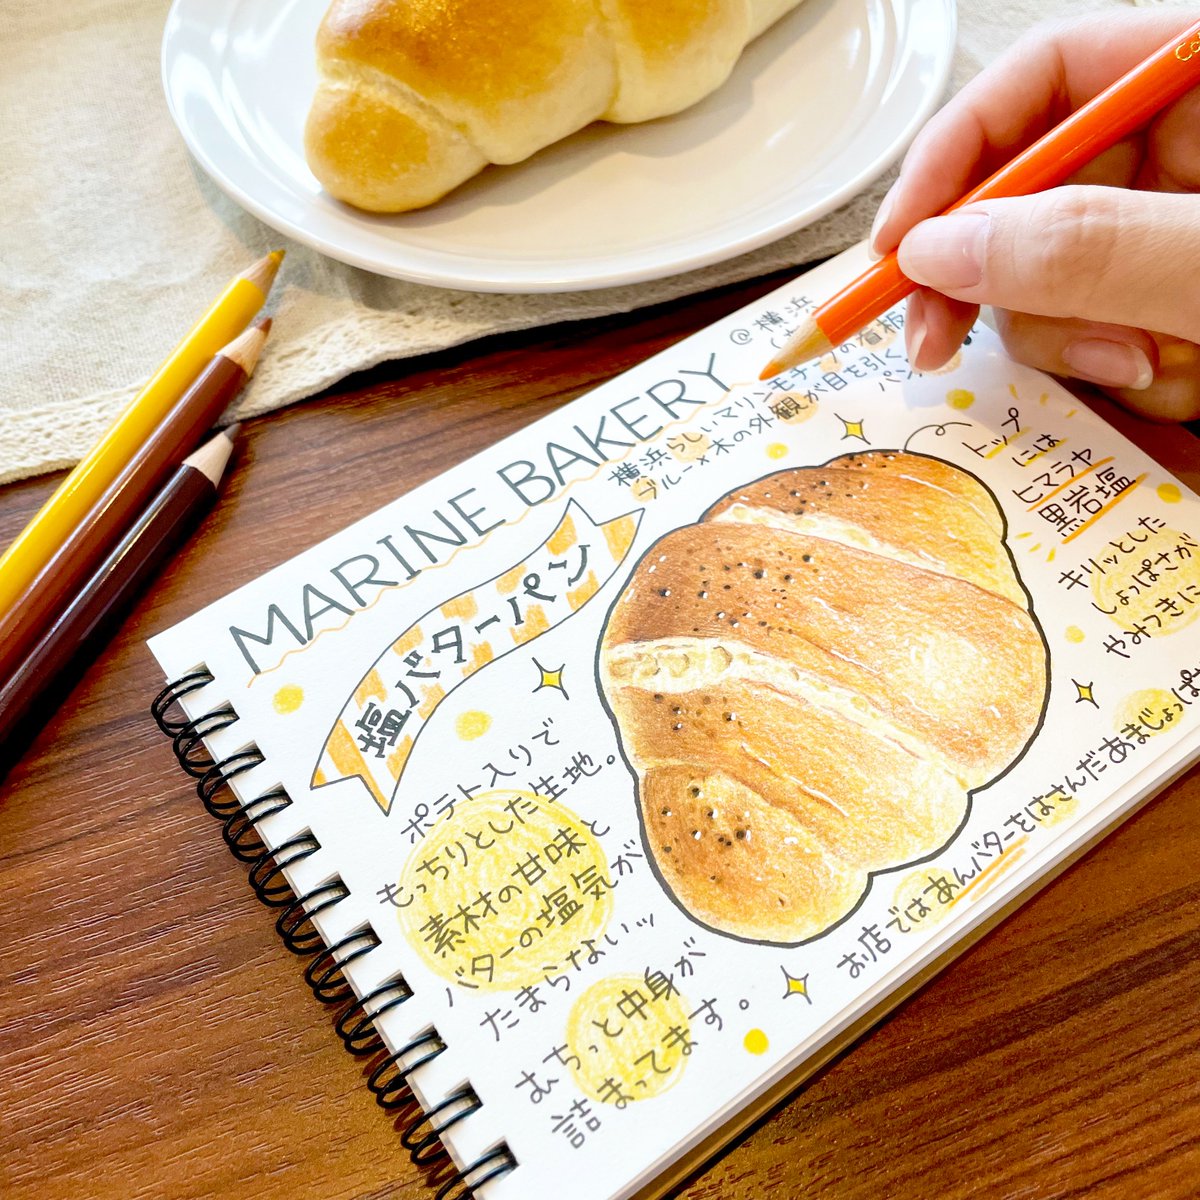 MARINE BAKERY
@横浜
横浜らしいマリンモチーフの看板
ブルー×木の外観が目を引く
パン
塩バターパン
トップ
には
ヒマラヤ
黒岩塩
キリッとした
しょっぱさが
やみつきに
ポテト入りで
もっちりとした生地。
素材の甘味と
バターの塩気が
たまらないッ
むちっと中身が
詰まってます。
お店ではあんバターをはさんだあまじょっぱ